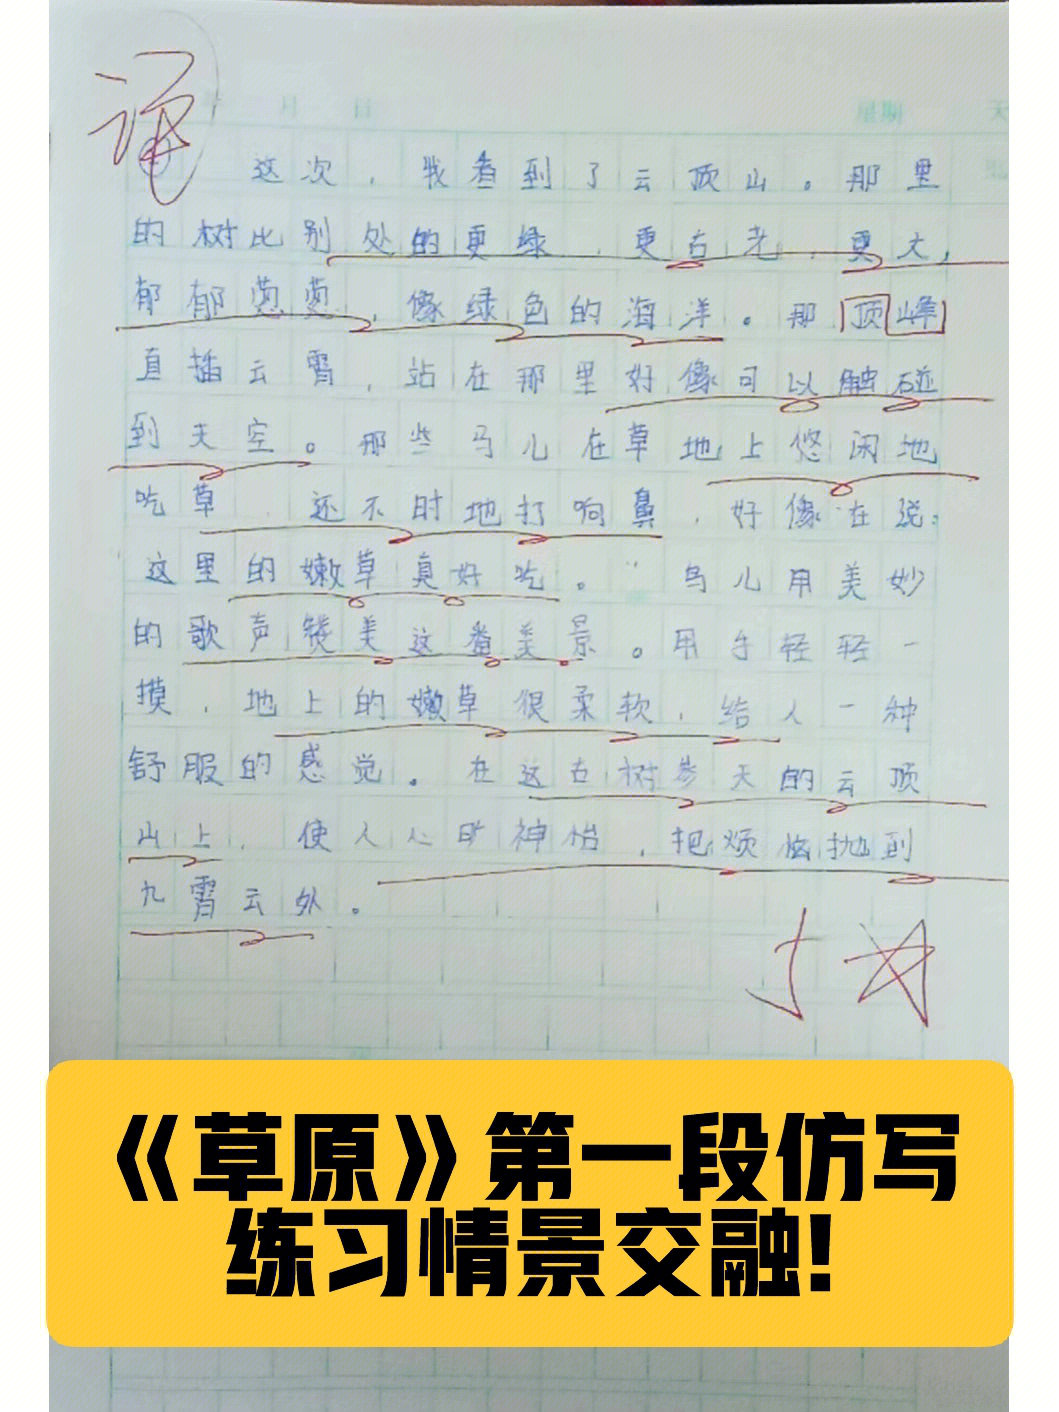 月 日 星期 天
这次，我看到了云顶山。那里
的树比别处的更绿，更古老，更大，
郁郁葱葱，像绿色的海洋。那顶峰
直插云霄，站在那里好像可以触碰
到天空。那些马儿在草地上悠闲地
吃草，还不时地打响鼻，好像在说：
这里的嫩草真好吃。”鸟儿用美妙
的歌声赞美这番美景。用手轻轻一
摸，地上的嫩草很柔软，给人一种
舒服的感觉。在这古树参天的云顶
山上，使人心旷神怡，把烦恼抛到
九霄云外。
《草原》第一段仿写
练习情景交融!